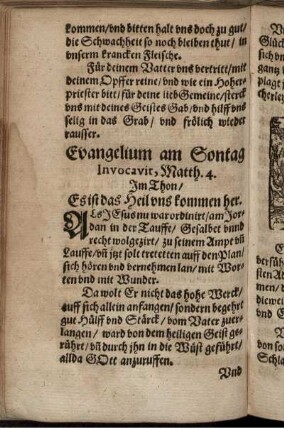 kommen/vnd bitten halt vns doch zu gut/
die Schwachheit so noch bleiben thut/ in
vnserm krancken Fleische.
Für deinem Vatter vns vertritt/mit
deinem Opffer reine/vnd wie ein Hoher-
priester bitt/für deine lieb Gemeine/sterck
vns mit deines Geistes Gab/vnd hilff vns
selig in das Grab/ vnd frölich wieder
rausser.
Evangelium am Sontag
Invocavit, Matth. 4.
Im Thon/
Es ist das Heil vns kommen her.
ALs JEsus nu war ordinirt/am Jor-
dan in der Tauffe/ Gesalbet vnnd
recht wolgezirt/ zu seinem Ampt vñ
Lauffe/vñ itzt solt tretten auff den Plan/
sich hören vnd vernemen lan/ mit Wor-
ten vnd mit Wunder.
Da wolt Er nicht das hohe Werck/
auff sich allein anfangen/sondern begehrt
gut Hülff vnd Stärck/ vom Vater zuer-
langen/ ward von dem heiligen Geist ge-
rührt/vñ durch jhn in die Wüst geführt/
allda GOtt anzuruffen.
Vnd